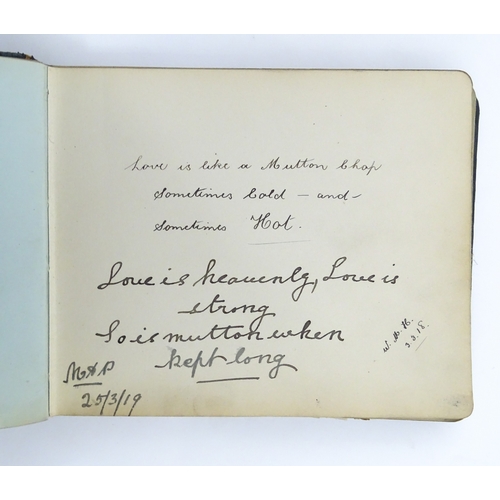 Love is like a Mutton Chop
Sometimes Cold - and -
Sometimes Hot.
Love is heavenly, Love is
strong
So is mutton when
kept long
W. M. H.
3.3.18.
25/3/19